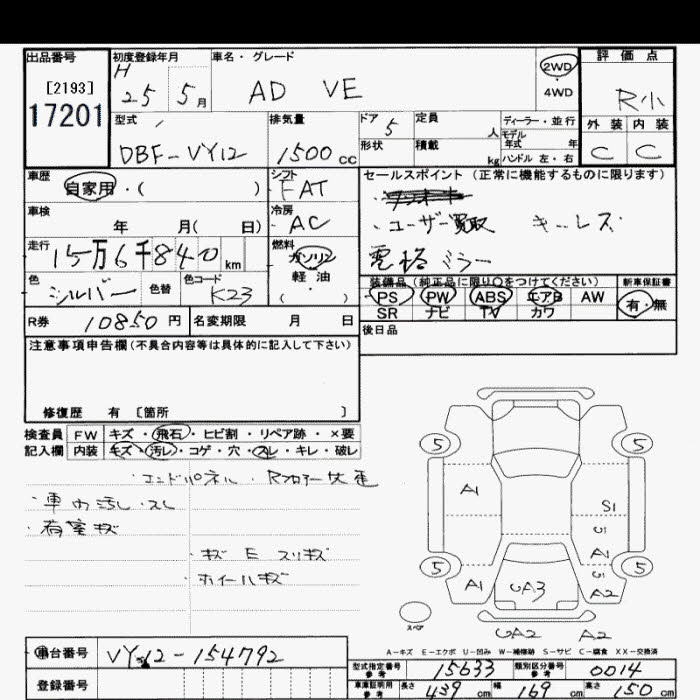 出品番号 初度登録年月 車名・グレード 評価点
[2193] H 25 5月 AD VE 2WD・4WD R小
17201 外装 内装
型式 排気量 ドア 5 定員 人 ディーラー・並行
DBF-VY12 1500cc 形状 積載 kg モデル年式 年 ハンドル 左・右 C C
車歴 自家用・( ) シフト FAT セールスポイント (正常に機能するものに限ります)
車検 年 月( 日) 冷房 AC ・ユーザー買取 キーレス
走行 15万6千840km 燃料 ガソリン・軽油・( ) 電格ミラー
色 シルバー 色替 色コード K23 装備品 (純正品に限り○をつけてください) 新車保証書
PS PW ABS エアB AW 有・無
SR ナビ TV カワ
R券 10850円 名変期限 月 日 後日品
注意事項申告欄(不具合内容等は具体的に記入して下さい)
修復歴 有 〔箇所 〕
検査員 FW キズ・飛石・ヒビ割・リペア跡・×要
記入欄 内装 キズ・汚レ・コゲ・穴・スレ・キレ・破レ
・エンドパネル・Rフロアー
・車内汚レ・スレ
・荷室キズ
・キズ E スリキズ
・ホイールキズ
5 5
A1 S1
U
A1
5 5
A1 UA3 U A2
スペア UA2 A2
A-キズ E-エクボ U-凹み W-補修跡 S-サビ C-腐食 XX-交換済
車台番号 VY12-154792
型式指定番号 参考 15633 類別区分番号 参考 0014
登録番号 車庫証明用 参考 長さ 439cm 幅 169cm 高さ 150cm